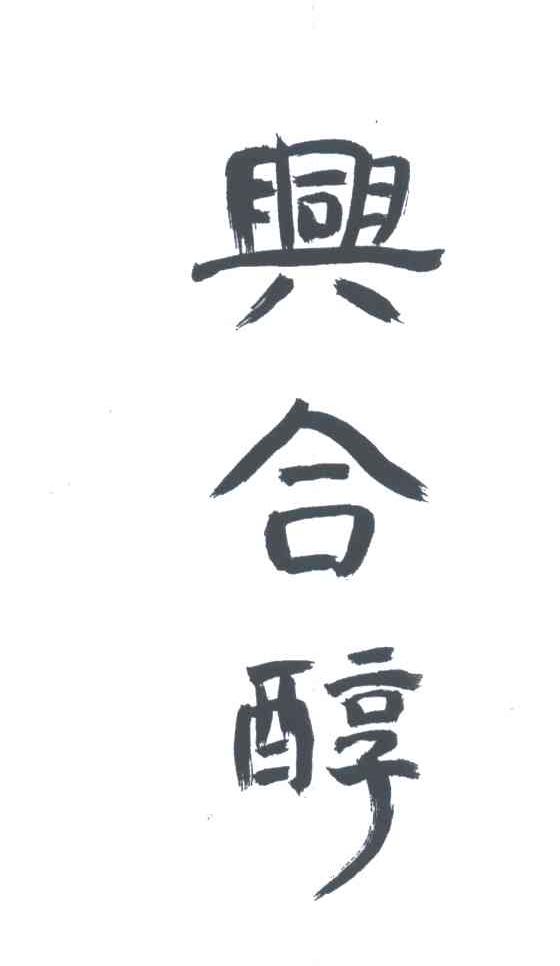 興合醇